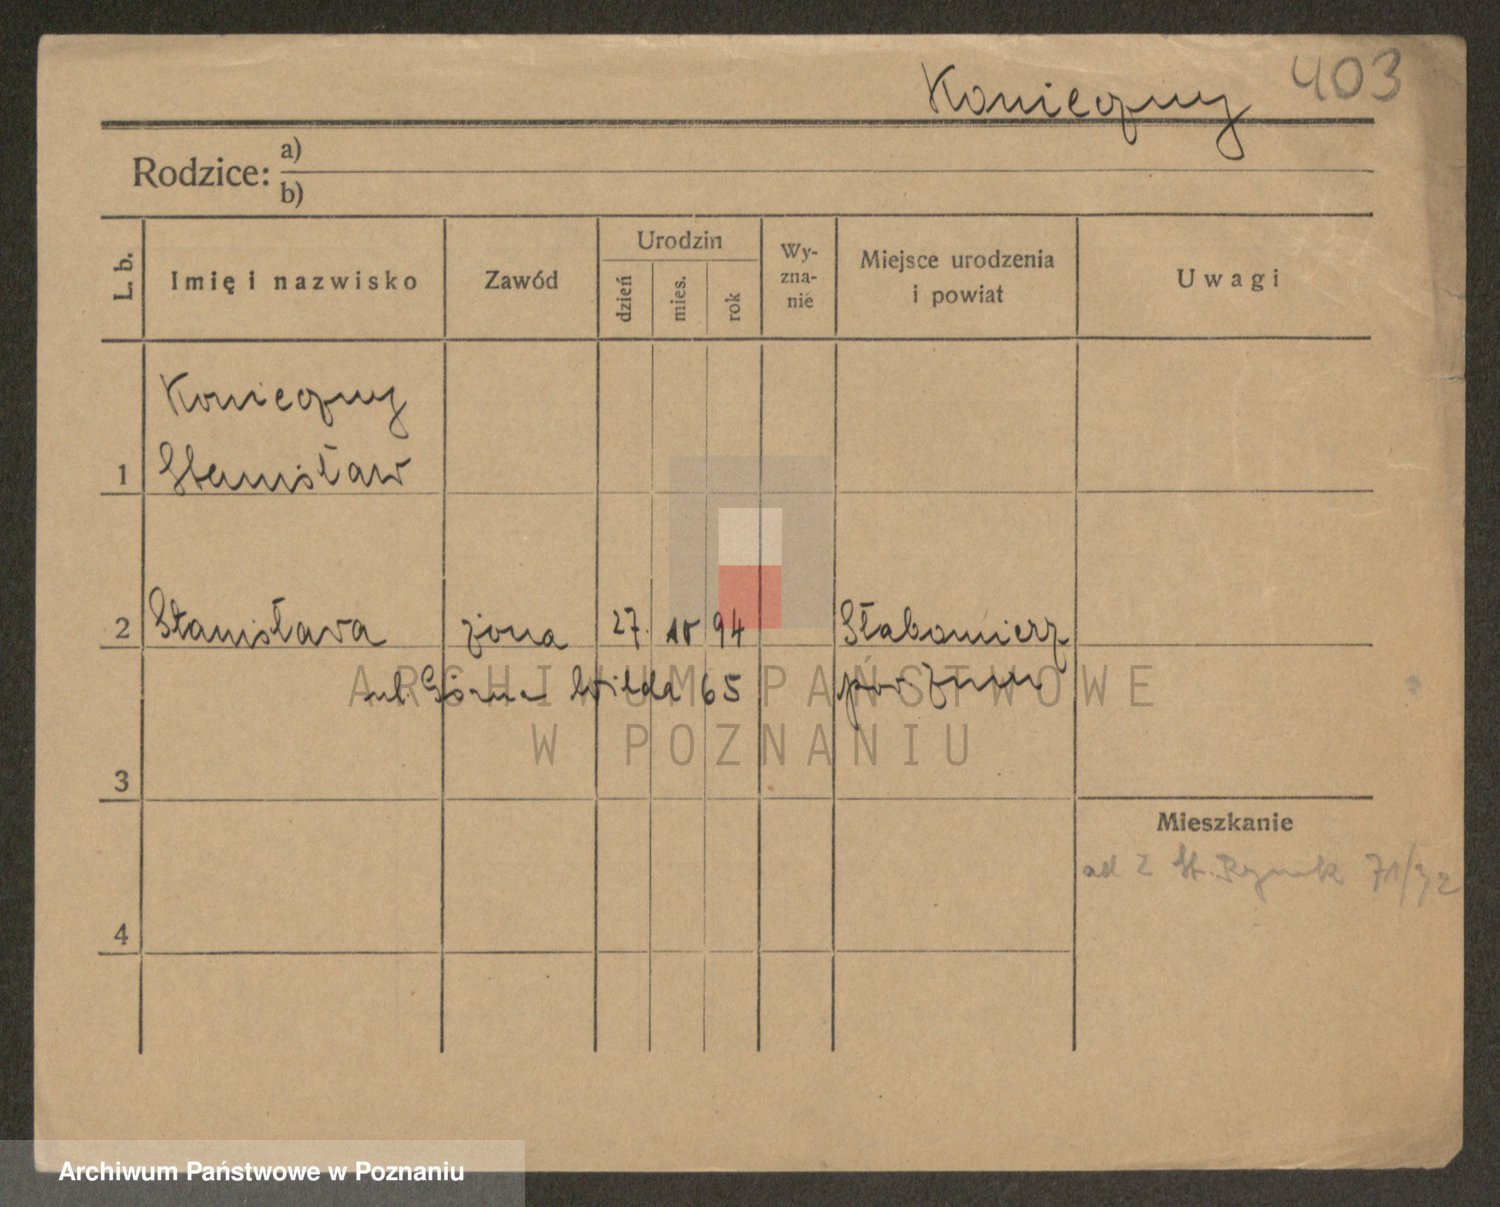 Konieczny 403
Rodzice: a)
b)
L. b.
Imię i nazwisko
Zawód
Urodzin
dzień
mies.
rok
Wy-
zna-
nie
Miejsce urodzenia
i powiat
Uwagi
Konieczny
1 Stanisław
2 Stanisława żona 27. 10 94 Słabomierz
ul. Górna Wilda 65 pow Żnin
3
Mieszkanie
od St. Rynek 71/72
4
ARCHIWUM PAŃSTWOWE
W POZNANIU
Archiwum Państwowe w Poznaniu